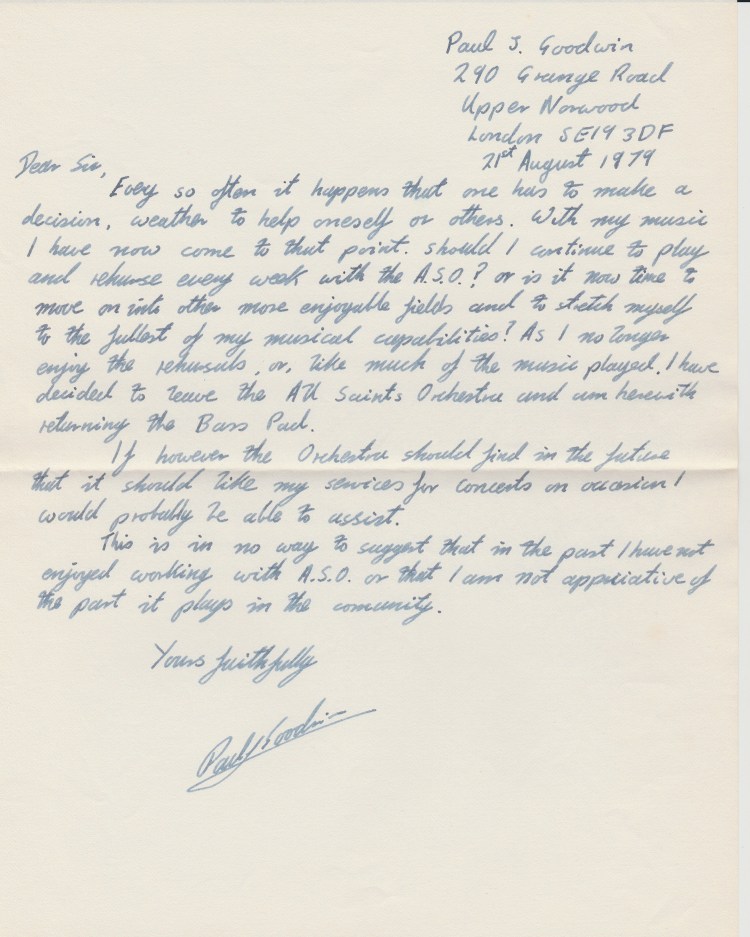 Paul J. Goodwin
290 Grange Road
Upper Norwood
London SE19 3DF
21st August 1979
Dear Sir,
Every so often it happens that one has to make a
decision, weather to help oneself or others. With my music
I have now come to that point. Should I continue to play
and rehurse every weak with the A.S.O.? or is it now time to
move on into other more enjoyable fields and to stretch myself
to the fullest of my musical capabilities? As I no longer
enjoy the rehursals, or, like much of the music played, I have
decided to leave the All Saints Orchestra and am herewith
returning the Bass Pad.
If however the Orchestra should find in the future
that it should like my services for concerts on occasion I
would probably be able to assist.
This is in no way to suggest that in the past I have not
enjoyed working with A.S.O. or that I am not appriciative of
the part it plays in the comunity.
Yours faithfully
Paul J Goodwin